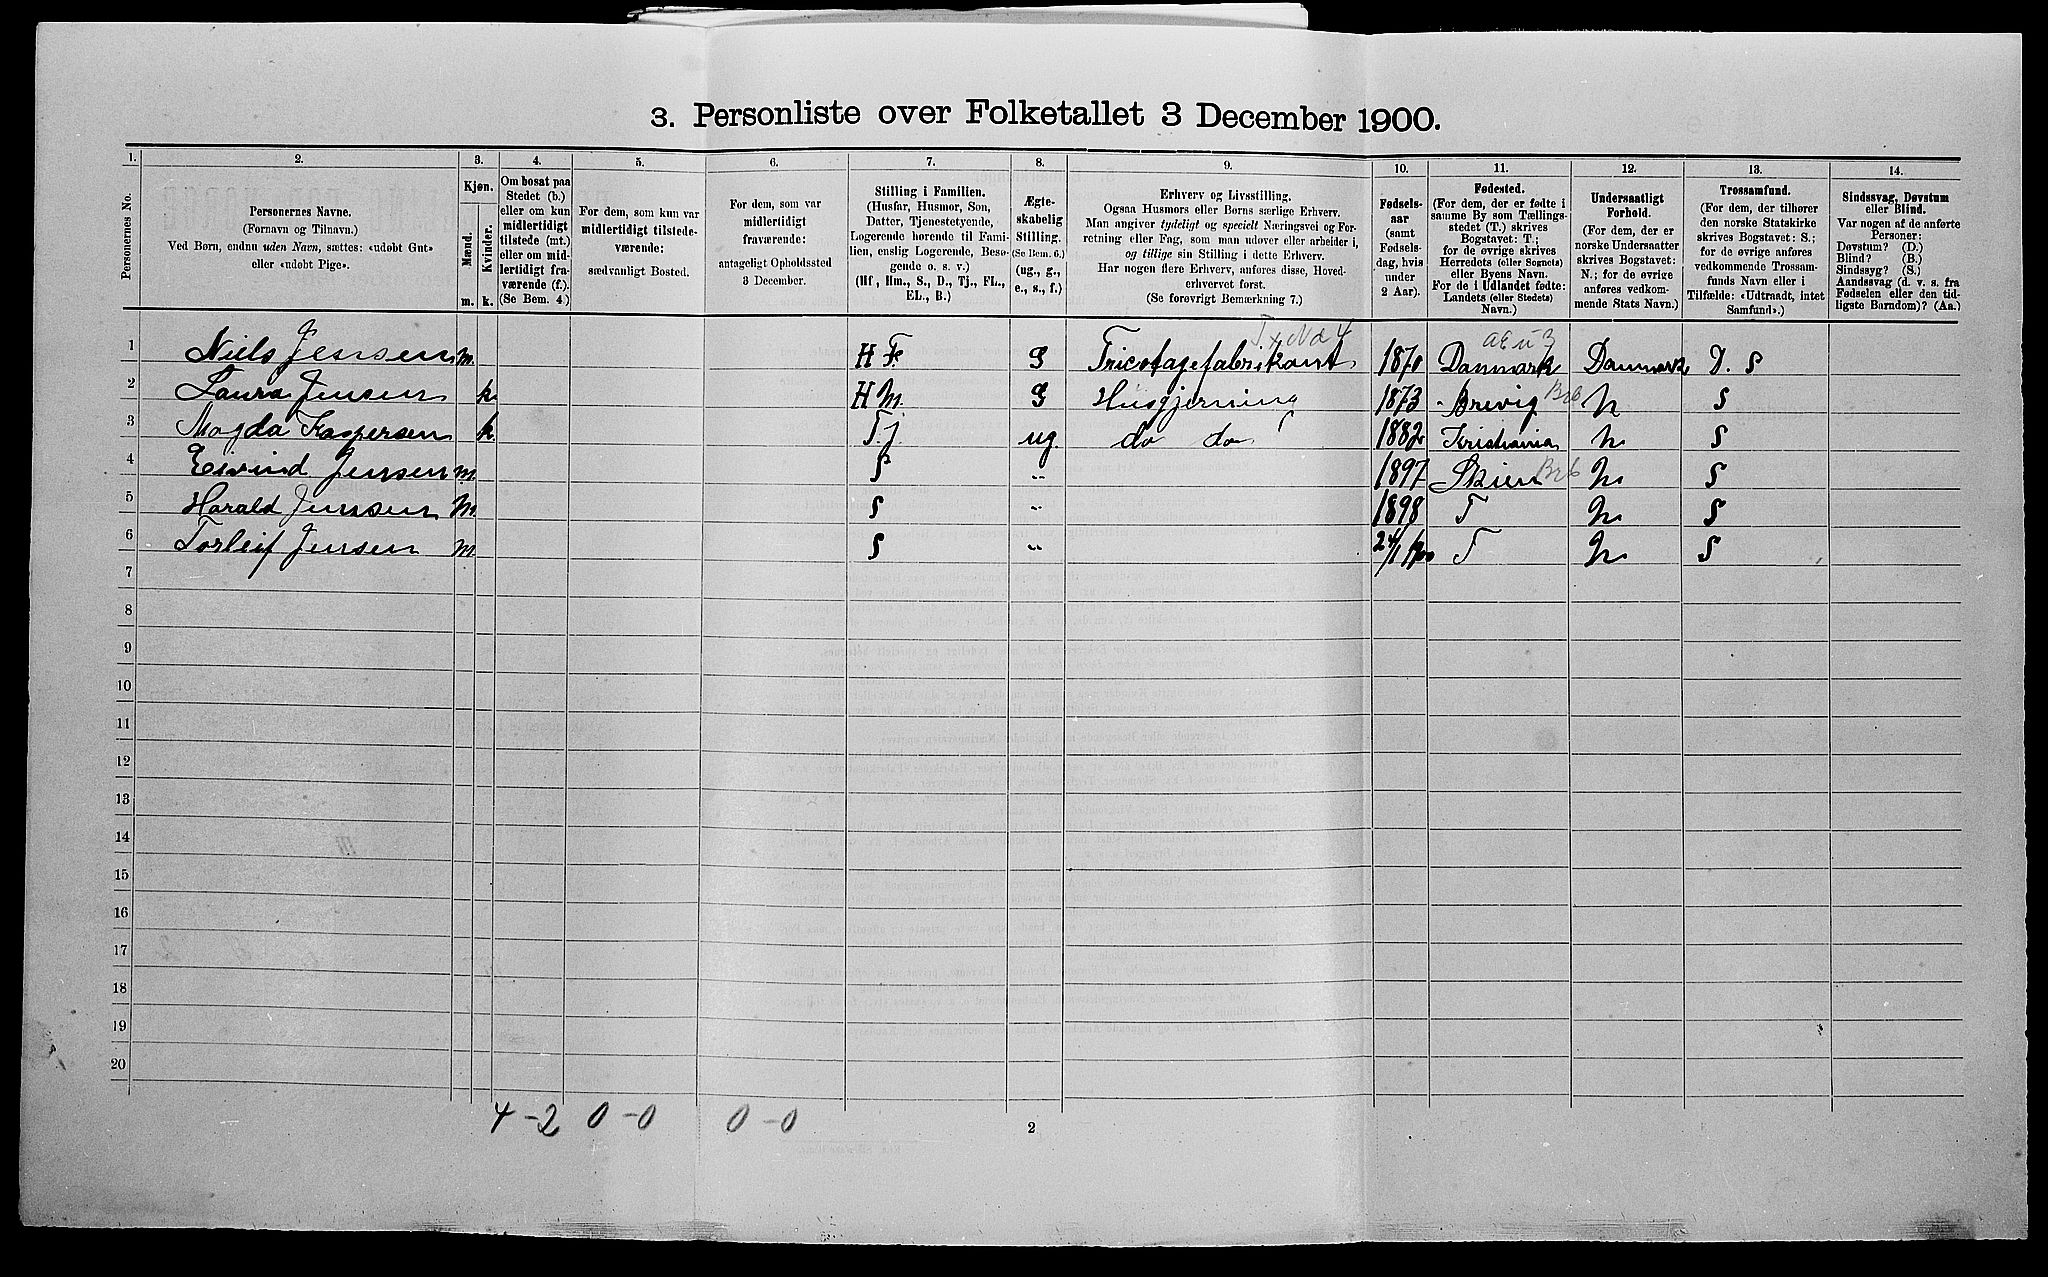 3. Personliste over Folketallet 3 December 1900.
1. 2. 3. 4. 5. 6. 7. 8. 9. 10. 11. 12. 13. 14.
Personernes No.
Personernes Navne.
(Fornavn og Tilnavn.)
Ved Børn, endnu uden Navn, sættes: «udøbt Gut»
eller «udøbt Pige».
Kjøn.
Mænd.
Kvinder.
m. k.
Om bosat paa
Stedet (b.)
eller om kun
midlertidigt
tilstede (mt.)
eller om mid-
lertidigt fra-
værende (f.).
(Se Bem. 4.)
For dem, som kun var
midlertidigt tilstede-
værende:
sædvanligt Bosted.
For dem, som var
midlertidigt
fraværende:
antageligt Opholdssted
3 December.
Stilling i Familien.
(Husfar, Husmor, Søn,
Datter, Tjenestetyende,
Logerende hørende til Fami-
lien, enslig Logerende, Besø-
gende o. s. v.)
(Hf, Hm., S., D., Tj., FL.,
EL., B.)
Ægte-
skabelig
Stilling.
(Se Bem. 6.)
(ug., g.,
e., s., f.)
Erhverv og Livsstilling.
Ogsaa Husmors eller Børns særlige Erhverv.
Man angiver tydeligt og specielt Næringsvei og For-
retning eller Fag, som man udøver eller arbeider i,
og tillige sin Stilling i dette Erhverv.
Har nogen flere Erhverv, anføres disse, Hoved-
erhvervet først.
(Se forøvrigt Bemærkning 7.)
Fødsels-
aar
(samt
Fødsels-
dag, hvis
under
2 Aar).
Fødested.
(For dem, der er fødte i
samme By som Tællings-
stedet (T.) skrives
Bogstavet: T.;
for de øvrige skrives
Herredets (eller Sognets)
eller Byens Navn.
For de i Udlandet fødte:
Landets (eller Stedets)
Navn.)
Undersaatligt
Forhold.
(For dem, der er
norske Undersaatter
skrives Bogstavet:
N.; for de øvrige
anføres vedkom-
mende Stats Navn.)
Trossamfund.
(For dem, der tilhører
den norske Statskirke
skrives Bogstavet: S.;
for de øvrige anføres
vedkommende Trossam-
funds Navn eller i
Tilfælde: «Udtraadt, intet
Samfund».)
Sindssvag, Døvstum
eller Blind.
Var nogen af de anførte
Personer:
Døvstum? (D.)
Blind? (B.)
Sindssyg? (S.)
Aandssvag (d. v. s. fra
Fødselen eller den tid-
ligste Barndom)? (Aa.)
1 Niels Jensen m. H F. G Tricotagefabrikant 1870 Danmark Danmark D. S
2 Laura Jensen k. H M. G Husgjerning 1873 Brevig N S
3 Magda Kaspersen k. T.j. ug. do do 1882 Kristiania N. S
4 Eivind Jensen m. S " 1897 Skien N. S
5 Harald Jensen m. S " 1898 T N. S
6 Torleif Jensen m. S " 24/1 1900 T N S
7
8
9
10
11
12
13
14
15
16
17
18
19
20
4 - 2 0 - 0 0 - 0
2